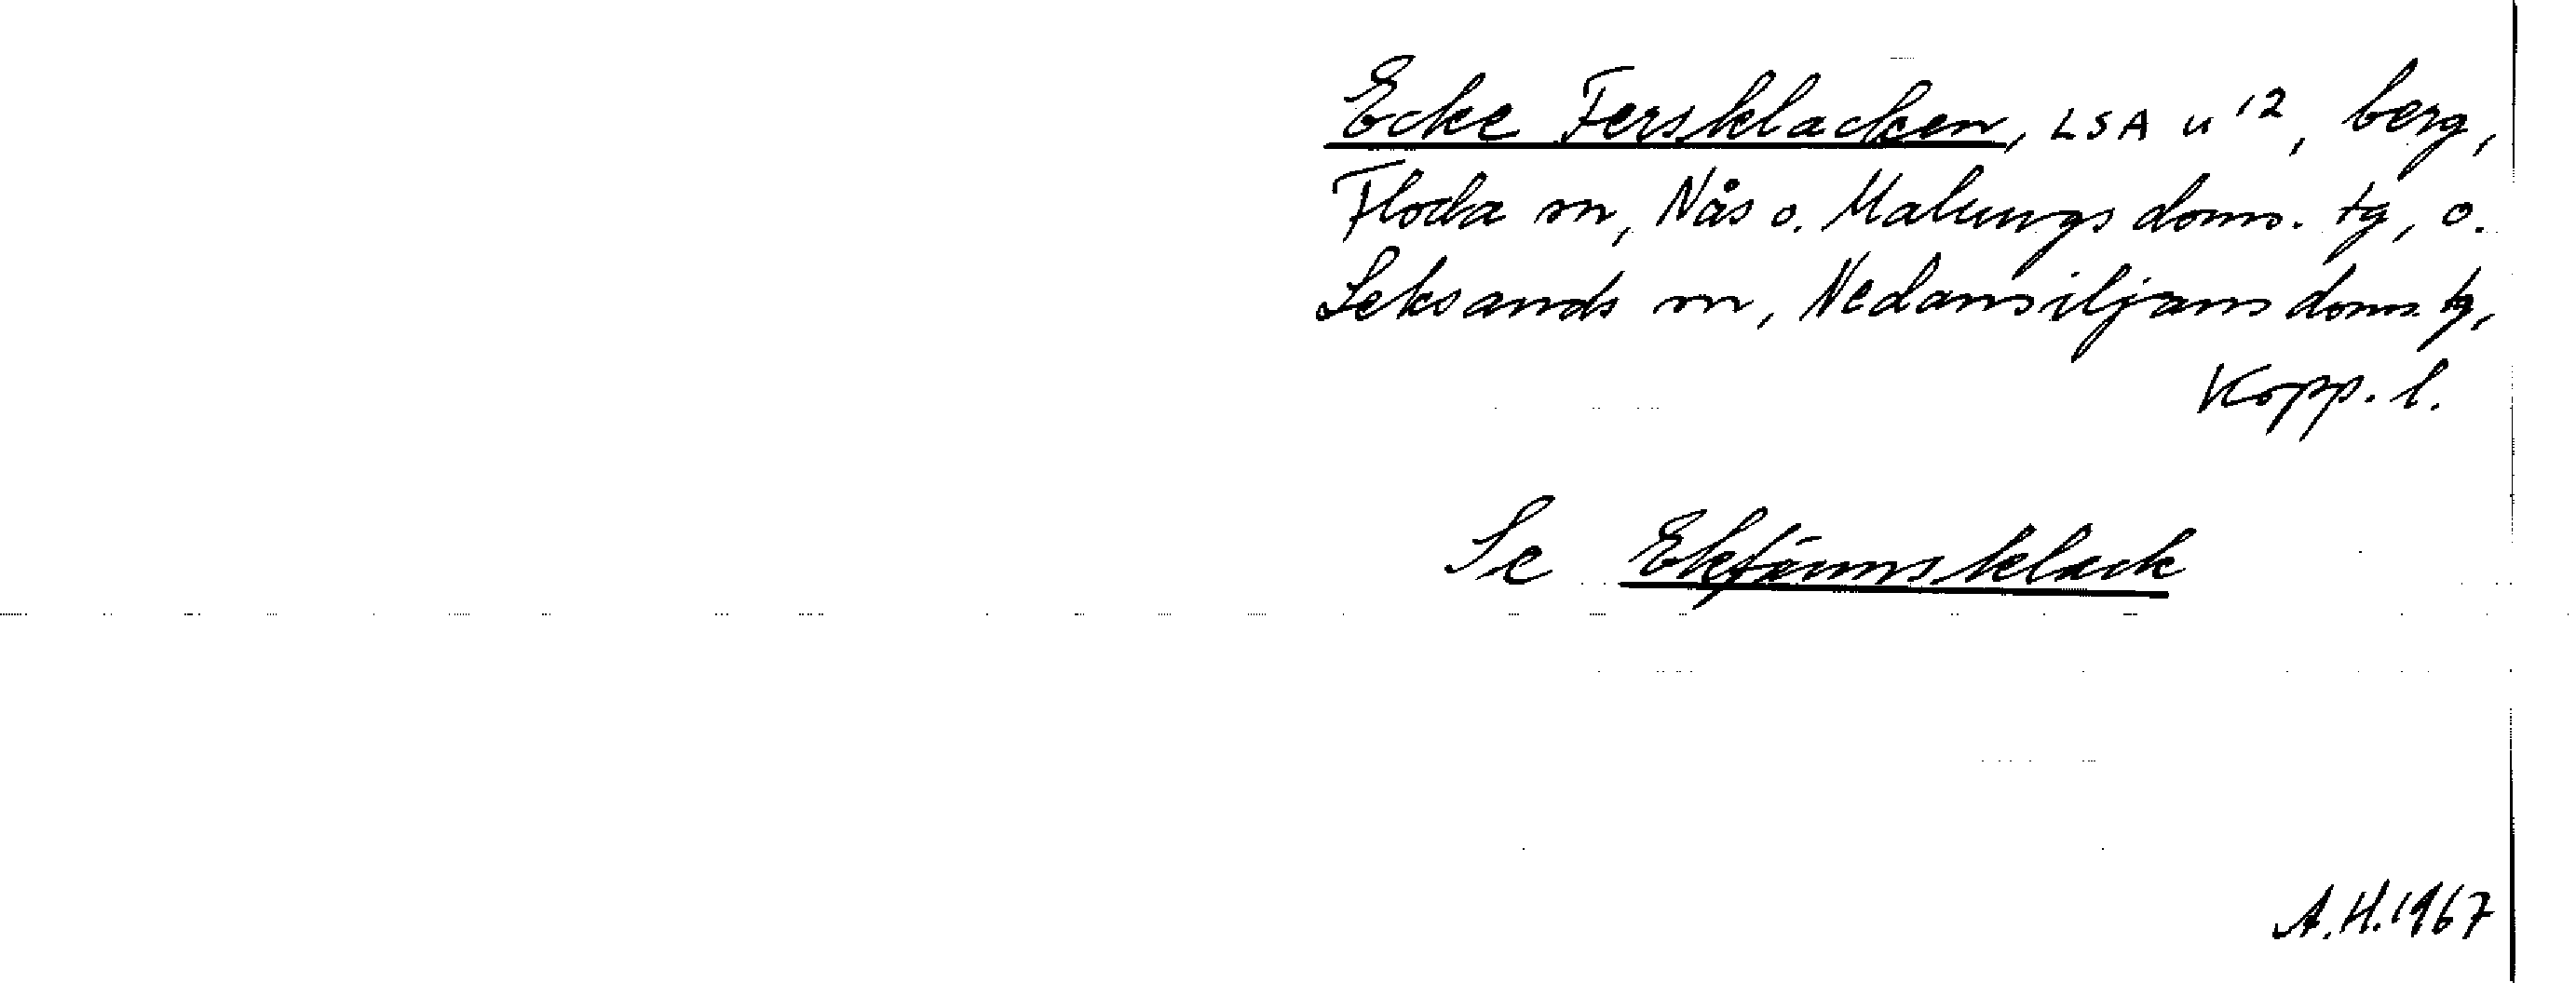 Ecke Fersklacken, LSA u 12, berg,
Floda sn, Nås o. Malungs doms. tg, o.
Leksands sn, Nedansiljans doms. tg,
Kopp. l.
Se
A.H. 1967